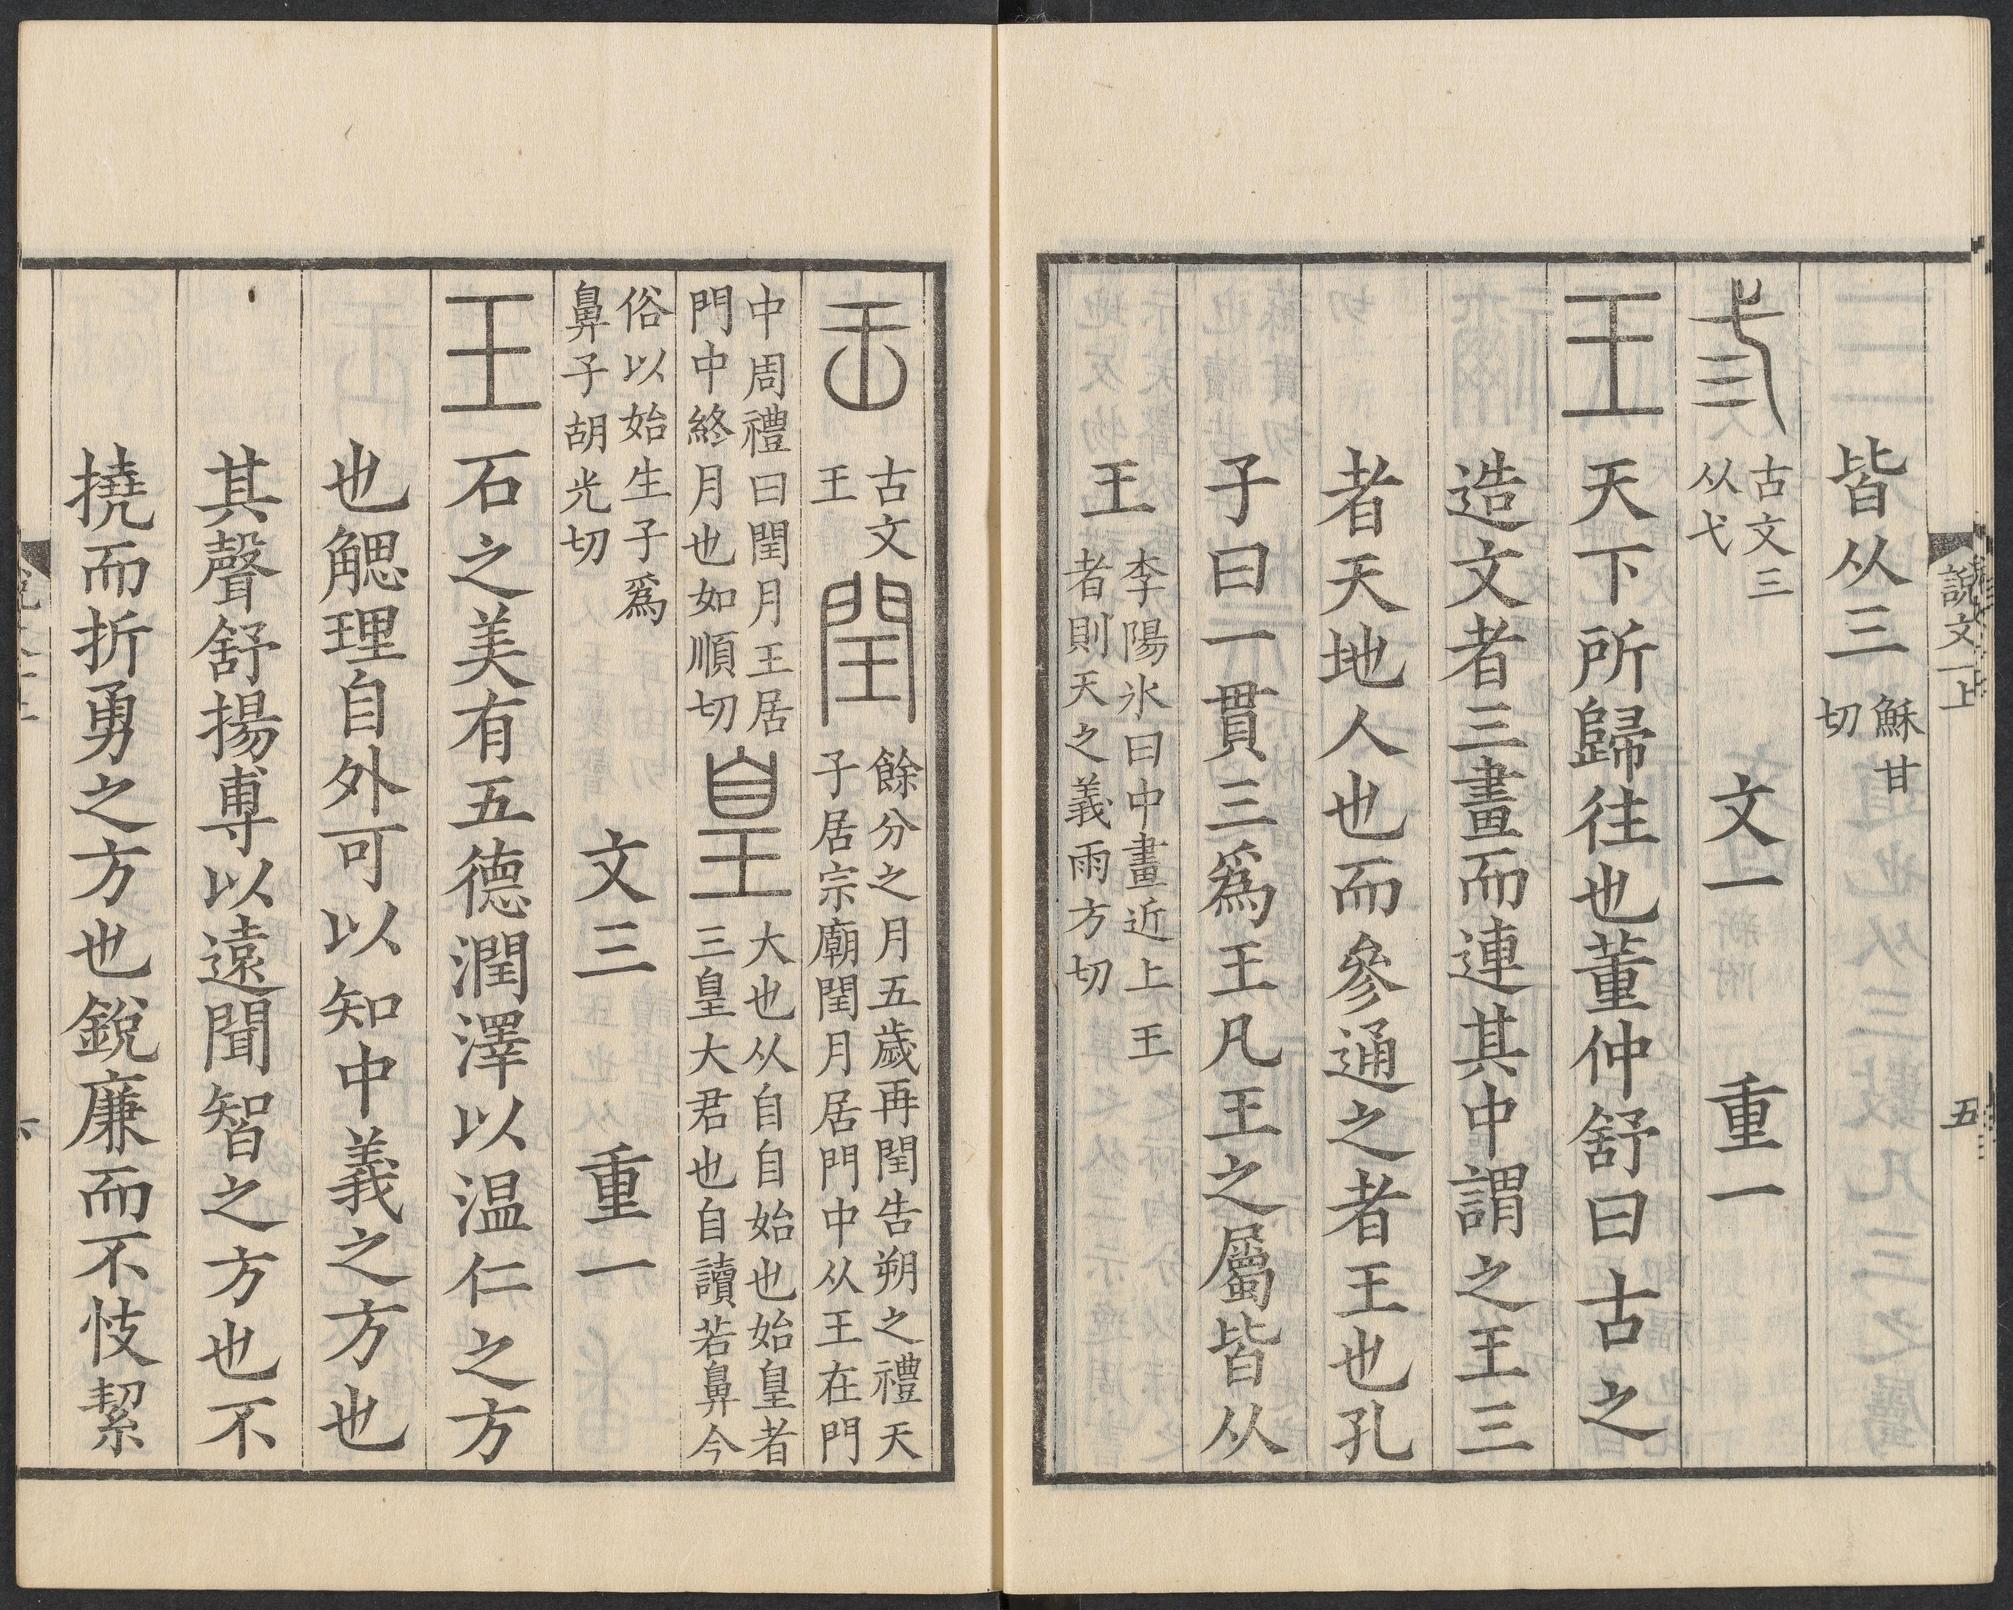 說文一上
五
皆从三穌甘切
弎古文三从弋
文一 重一
王天下所歸往也董仲舒曰古之
造文者三畫而連其中謂之王三
者天地人也而參通之者王也孔
子曰一貫三爲王凡王之屬皆从
王李陽冰曰中畫近上王者則天之義雨方切
古文王閏餘分之月五歲再閏告朔之禮天子居宗廟閏月居門中从王在門
中周禮曰閏月王居門中終月也如順切皇大也从自自始也始皇者三皇大君也自讀若鼻今
俗以始生子爲鼻子胡光切
文三 重一
王石之美有五德潤澤以温仁之方
也䚡理自外可以知中義之方也
其聲舒揚尃以遠聞智之方也不
撓而折勇之方也銳廉而不忮絜